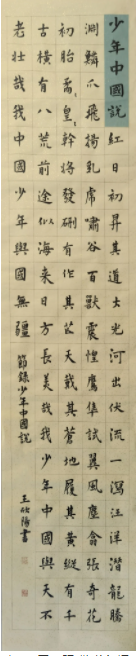 少年中國說紅日初昇其道大光河出伏流一瀉汪洋潛龍騰
淵鱗爪飛揚乳虎嘯谷百獸震惶鷹隼試翼風塵翕張奇花
初胎矞〻皇〻幹將發硎有作其芒天戴其蒼地履其黃縱有千
古橫有八荒前途似海来日方長美哉我少年中國與天不
老壯哉我中國少年與國無疆
節錄少年中國說
王欣陽書